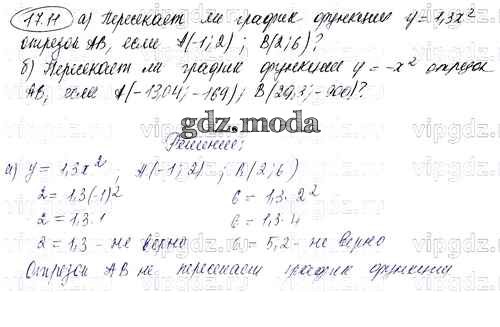 17.11 а) Пересекает ли график функции y = 1,3x²
отрезок AB, если A(-1; 2); B(2; 6)?
б) Пересекает ли график функции y = -x² отрезок
AB, если A(-13,04; -169); B(29,3; -900)?
gdz.moda
Решение:
а) y = 1,3x², A(-1; 2); B(2; 6)
2 = 1,3(-1)² 6 = 1,3·2²
2 = 1,3·1 6 = 1,3·4
2 = 1,3 - не верно 6 = 5,2 - не верно
Отрезок AB не пересекает график функции